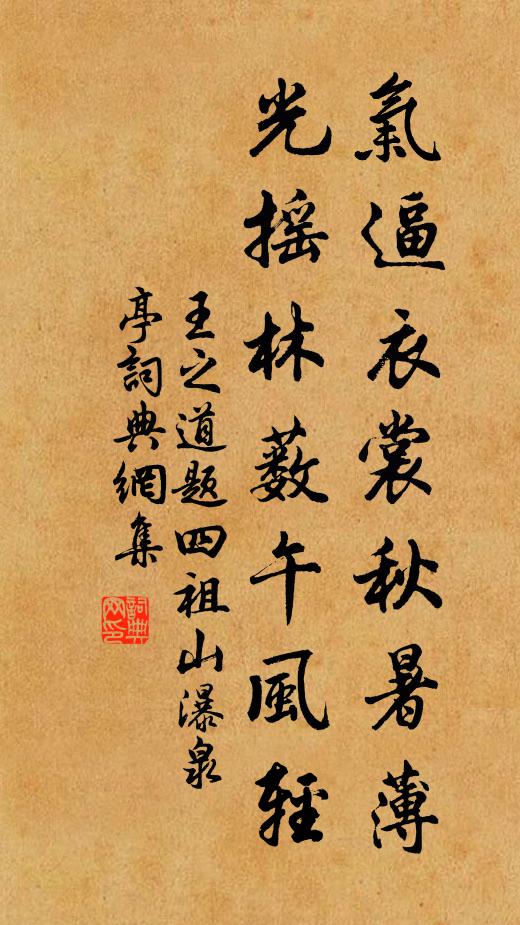 氣逼衣裳秋暑薄
光摇林薮午風輕
王之道题四祖山瀑泉
亭詞典網集
詞典網印